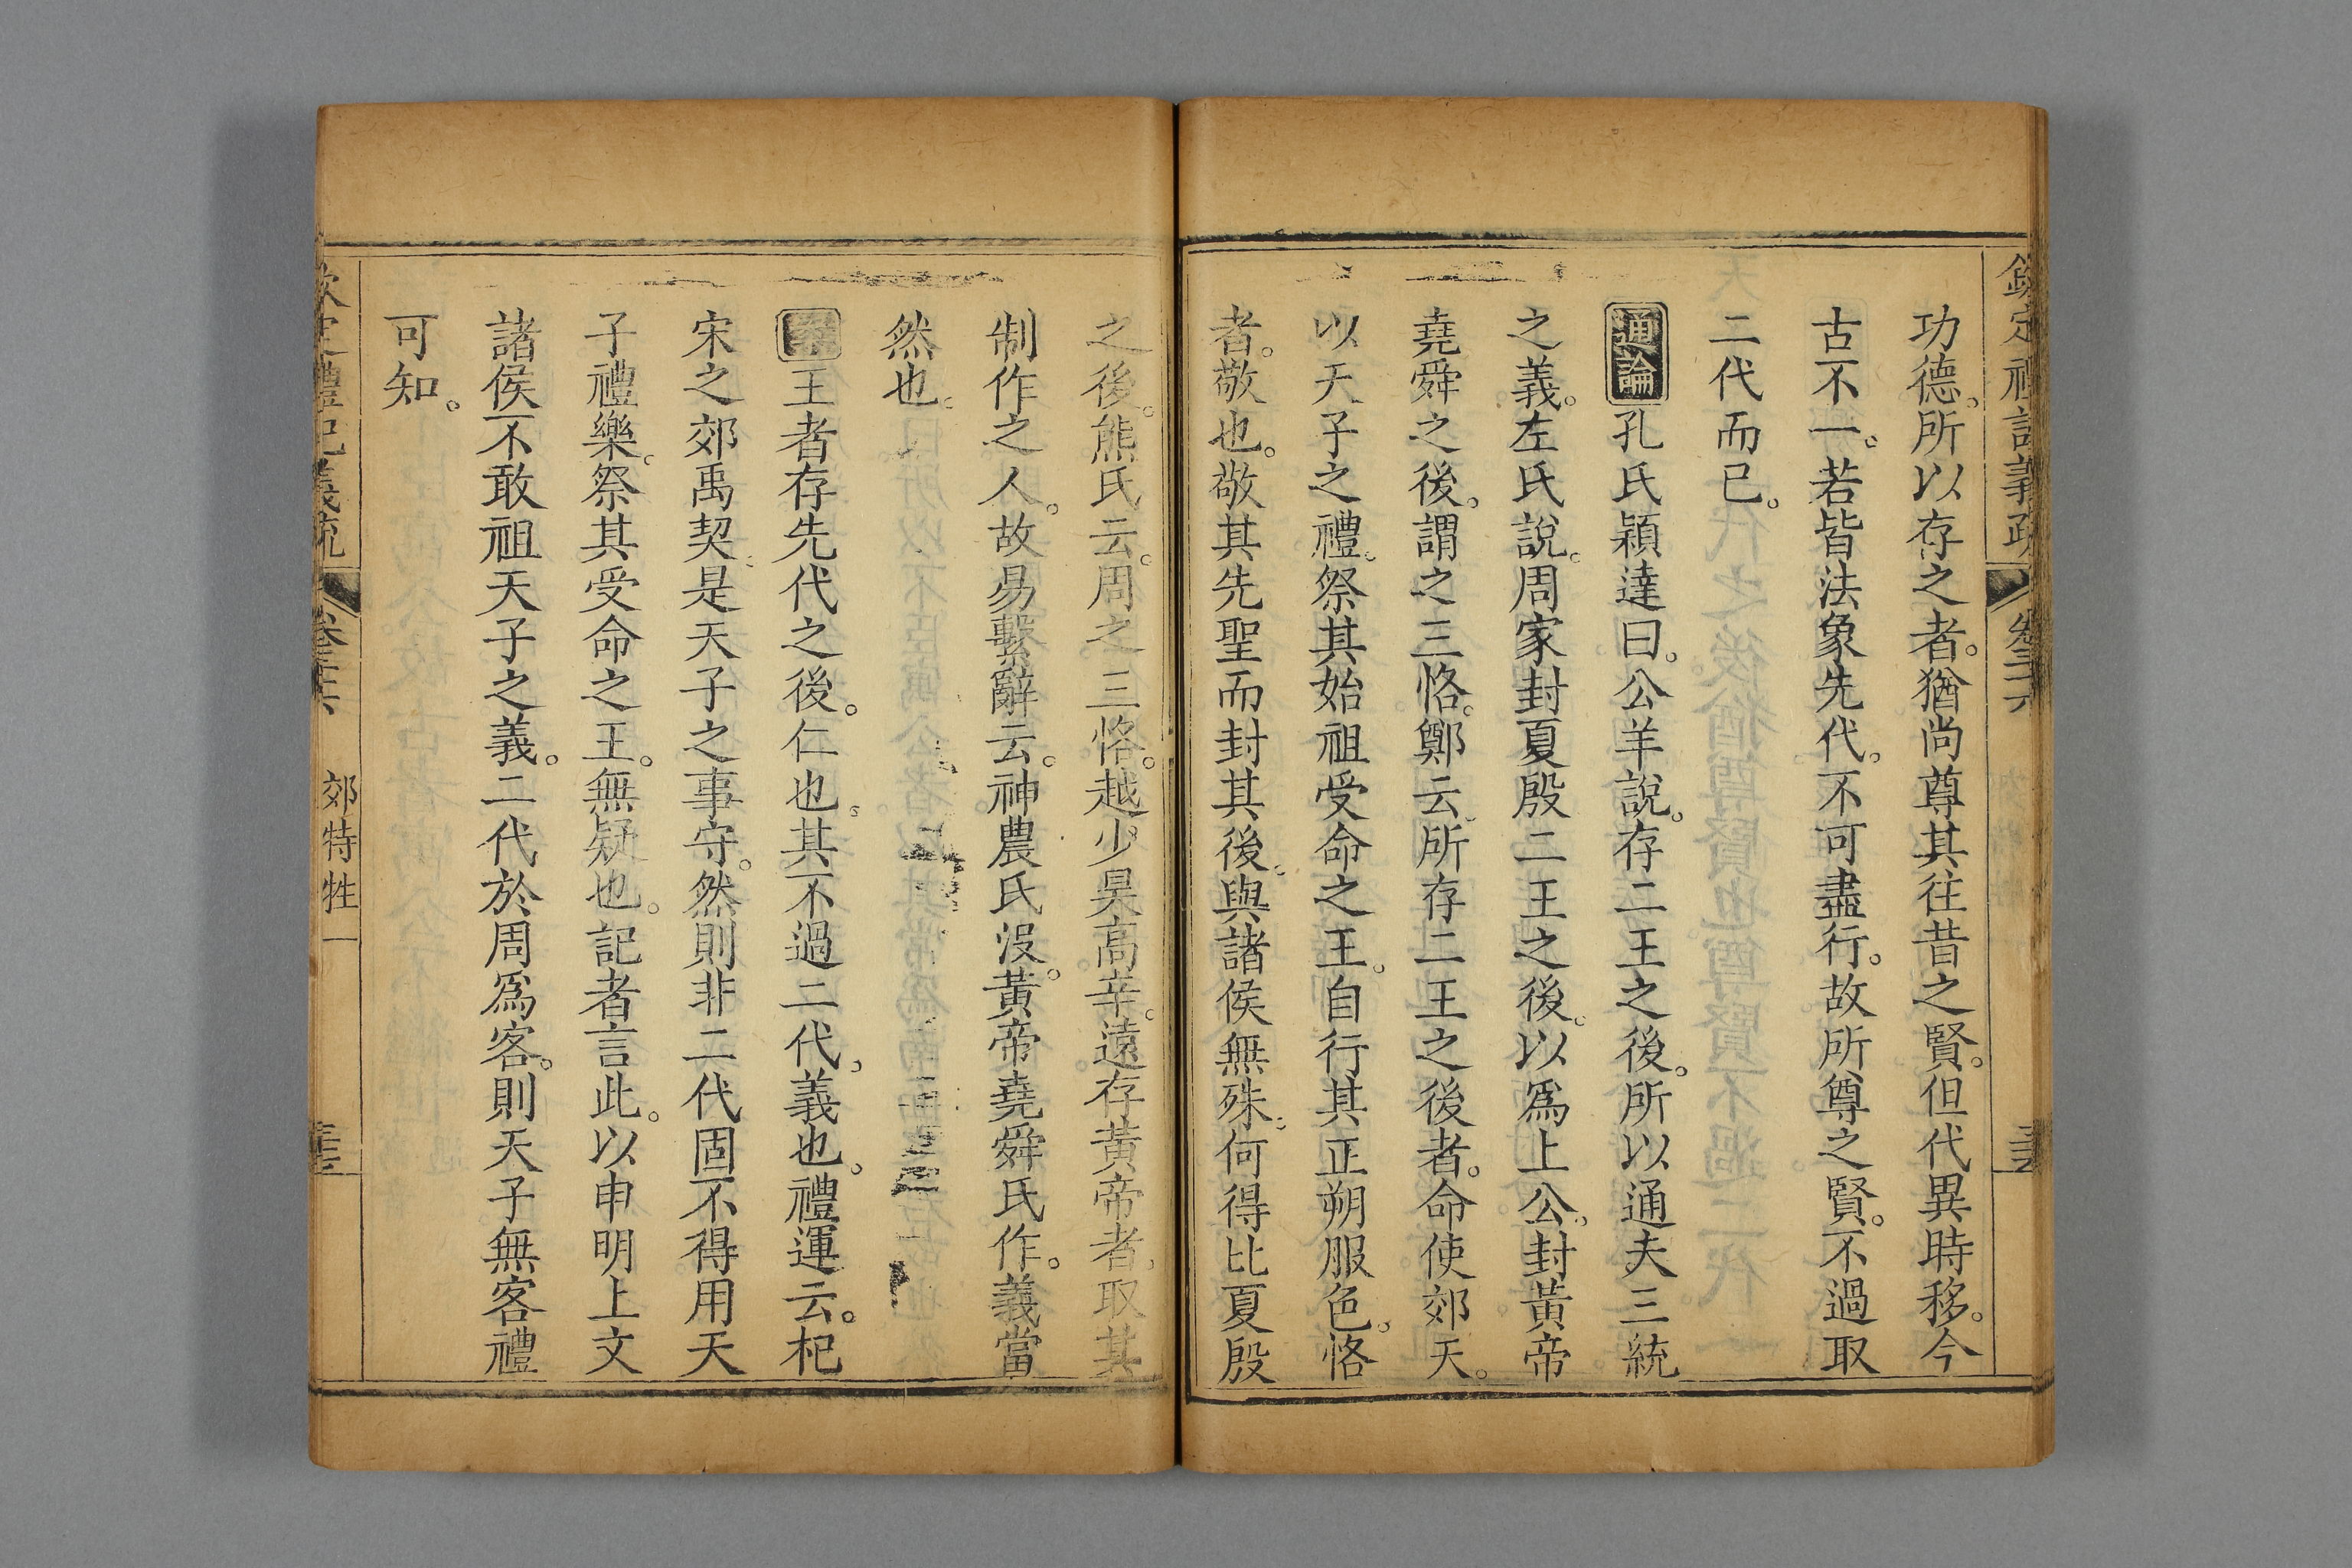 欽定禮記義疏 卷三十六
功德。所以存之者。猶尚尊其往昔之賢。但代異時移。今
古不一。若皆法象先代。不可盡行。故所尊之賢。不過取
二代而已。
通論孔氏穎達曰。公羊說。存二王之後。所以通夫三統
之義。左氏說。周家封夏殷二王之後。以爲上公。封黃帝
堯舜之後。謂之三恪。鄭云。所存二王之後者。命使郊天。
以天子之禮。祭其始祖受命之王。自行其正朔服色。恪
者。敬也。敬其先聖而封其後。與諸侯無殊。何得比夏殷
之後。熊氏云。周之三恪。越少昊高辛。遠存黃帝者。取其
制作之人。故易繫辭云。神農氏沒。黃帝堯舜氏作。義當
然也。
案王者存先代之後。仁也。其不過二代。義也。禮運云。杞
宋之郊禹契。是天子之事守。然則非二代固不得用天
子禮樂。祭其受命之王。無疑也。記者言此。以申明上文
諸侯不敢祖天子之義。二代於周爲客。則天子無客禮
可知。
欽定禮記義疏 卷三十六 郊特牲一